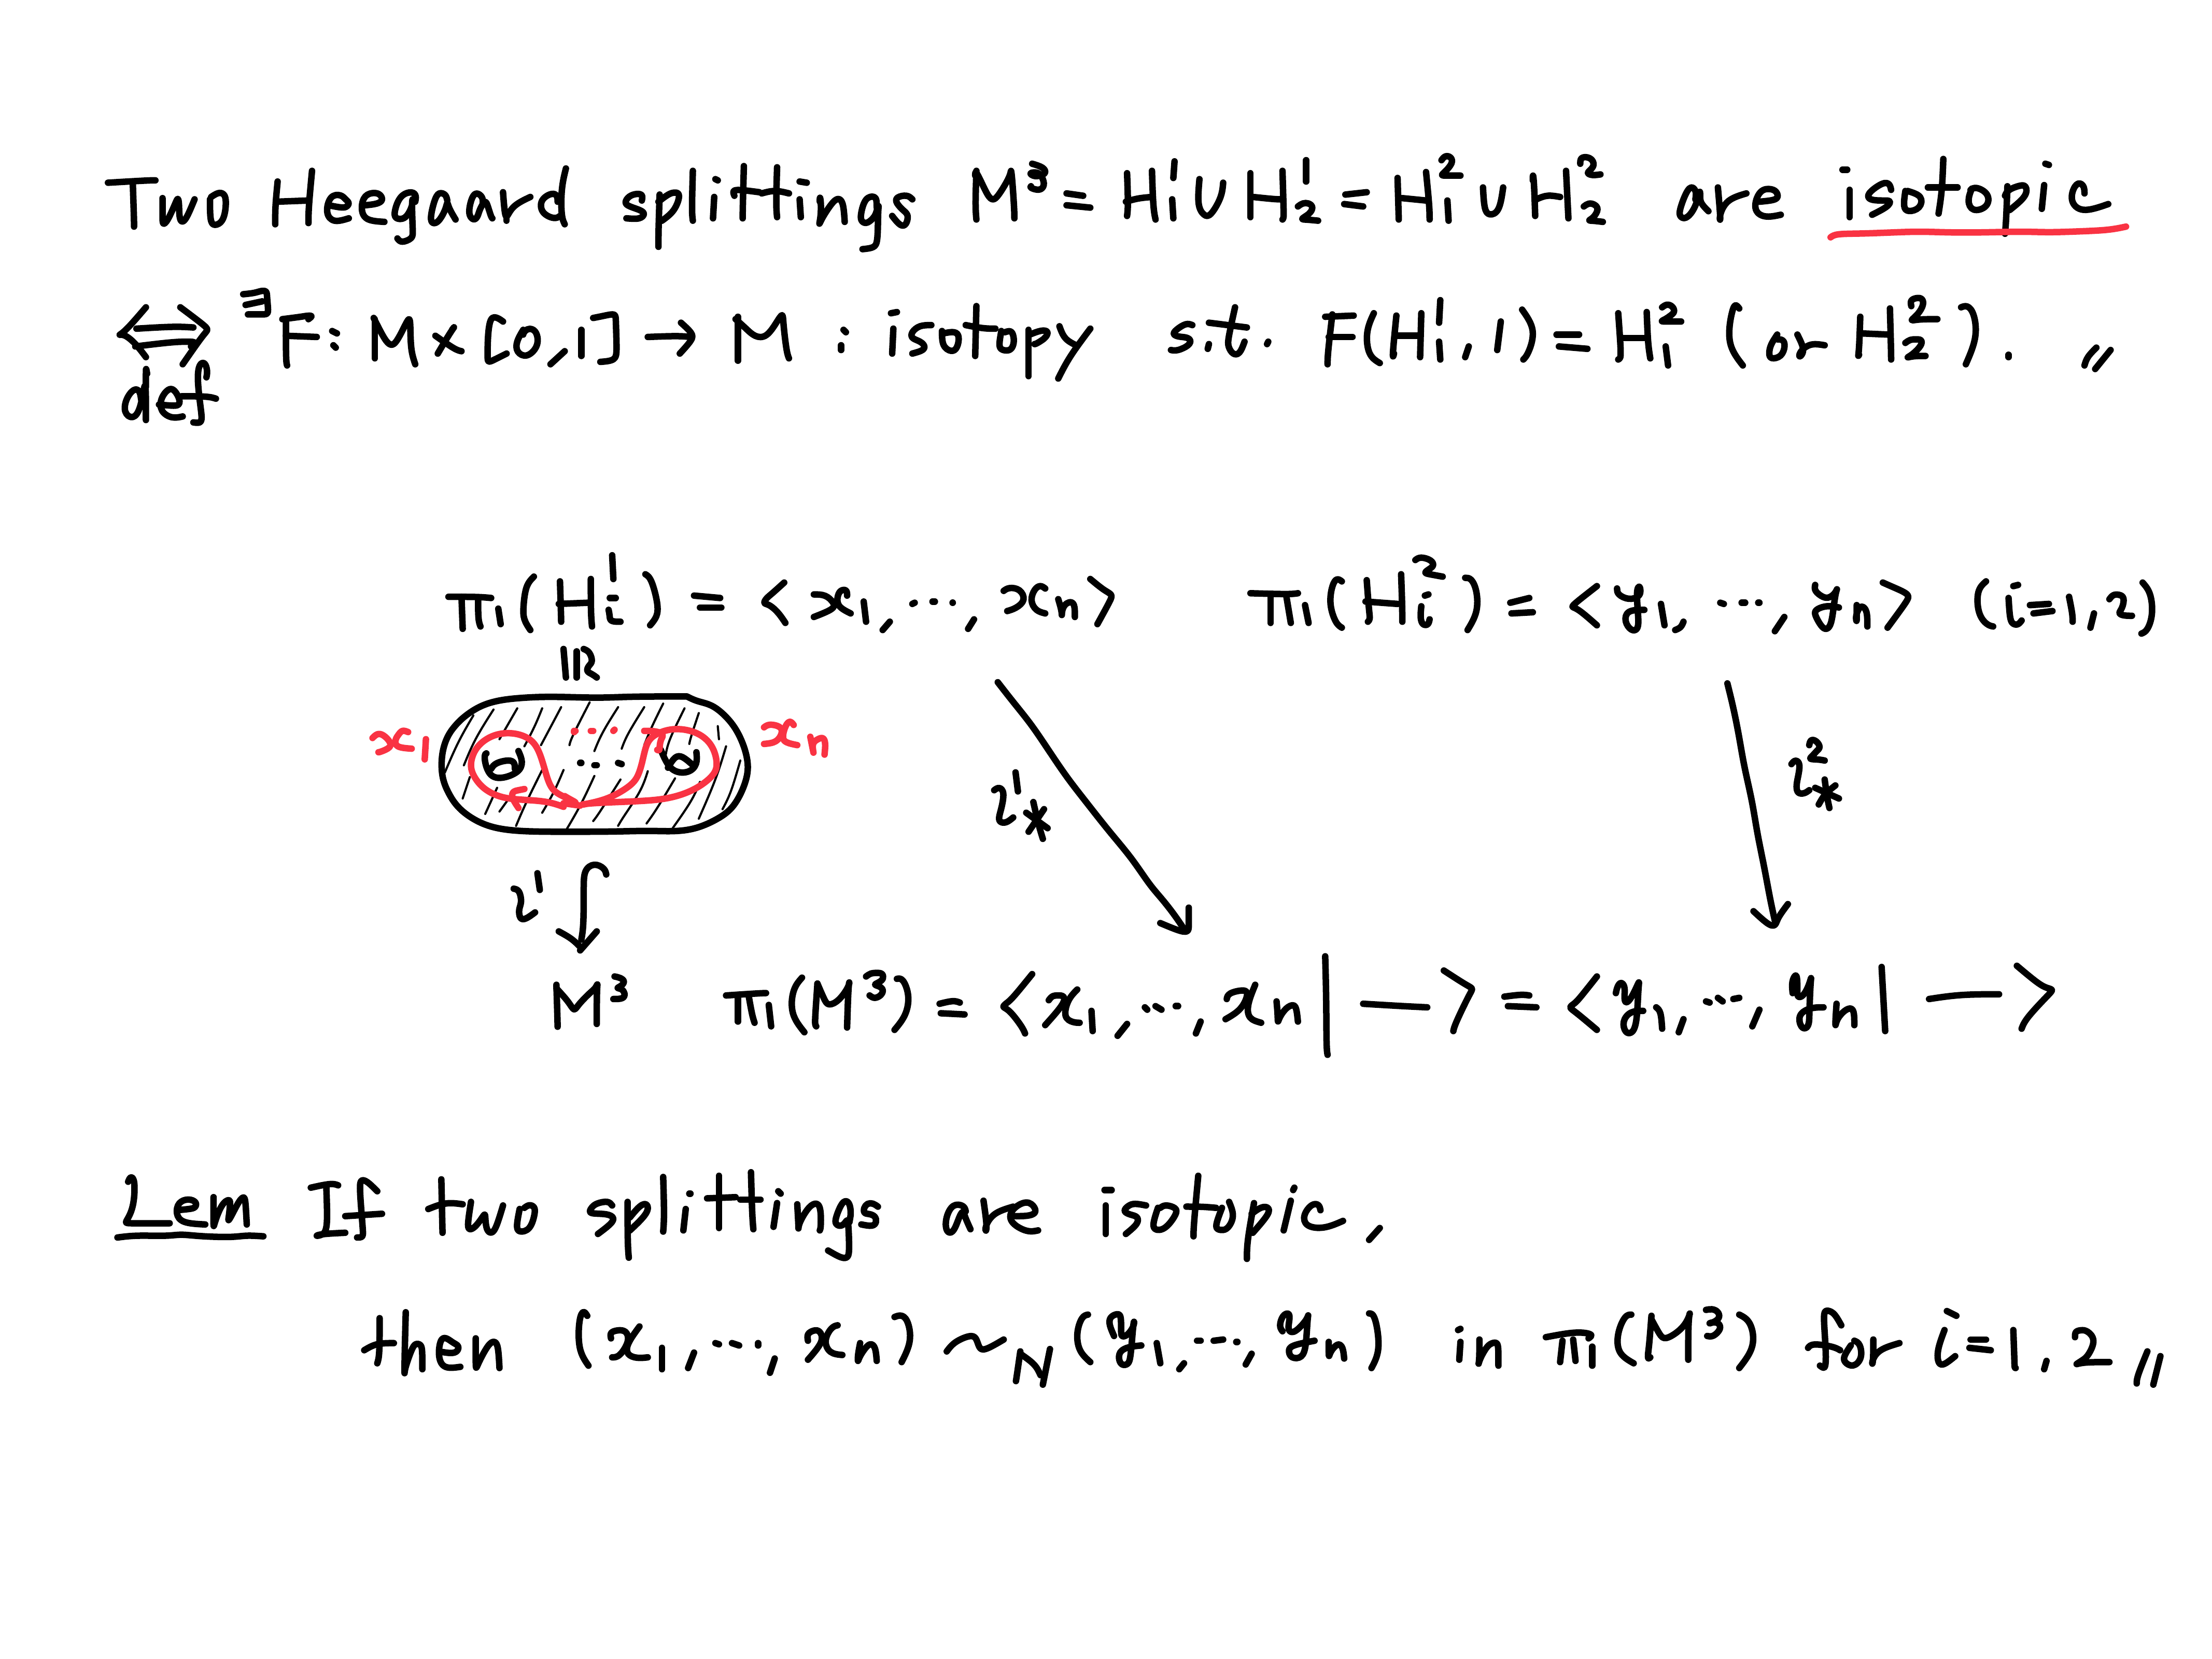 Two Heegaard splittings M³ = H₁¹ ∪ H₂¹ = H₁² ∪ H₂² are isotopic
⟺ def ∃F: M × [0,1] → M : isotopy s.t. F(H₁¹, 1) = H₁² (or H₂²). 〃
π₁(Hᵢ¹) = <x₁, ..., xn> π₁(Hᵢ²) = <y₁, ..., yn> (i=1,2)
x₁ ... xn
i¹ i¹* i²*
M³ π₁(M³) = <x₁, ..., xn | — > = <y₁, ..., yn | — >
Lem If two splittings are isotopic,
then (x₁, ..., xn) ~N (y₁, ..., yn) in π₁(M³) for i=1,2 〃